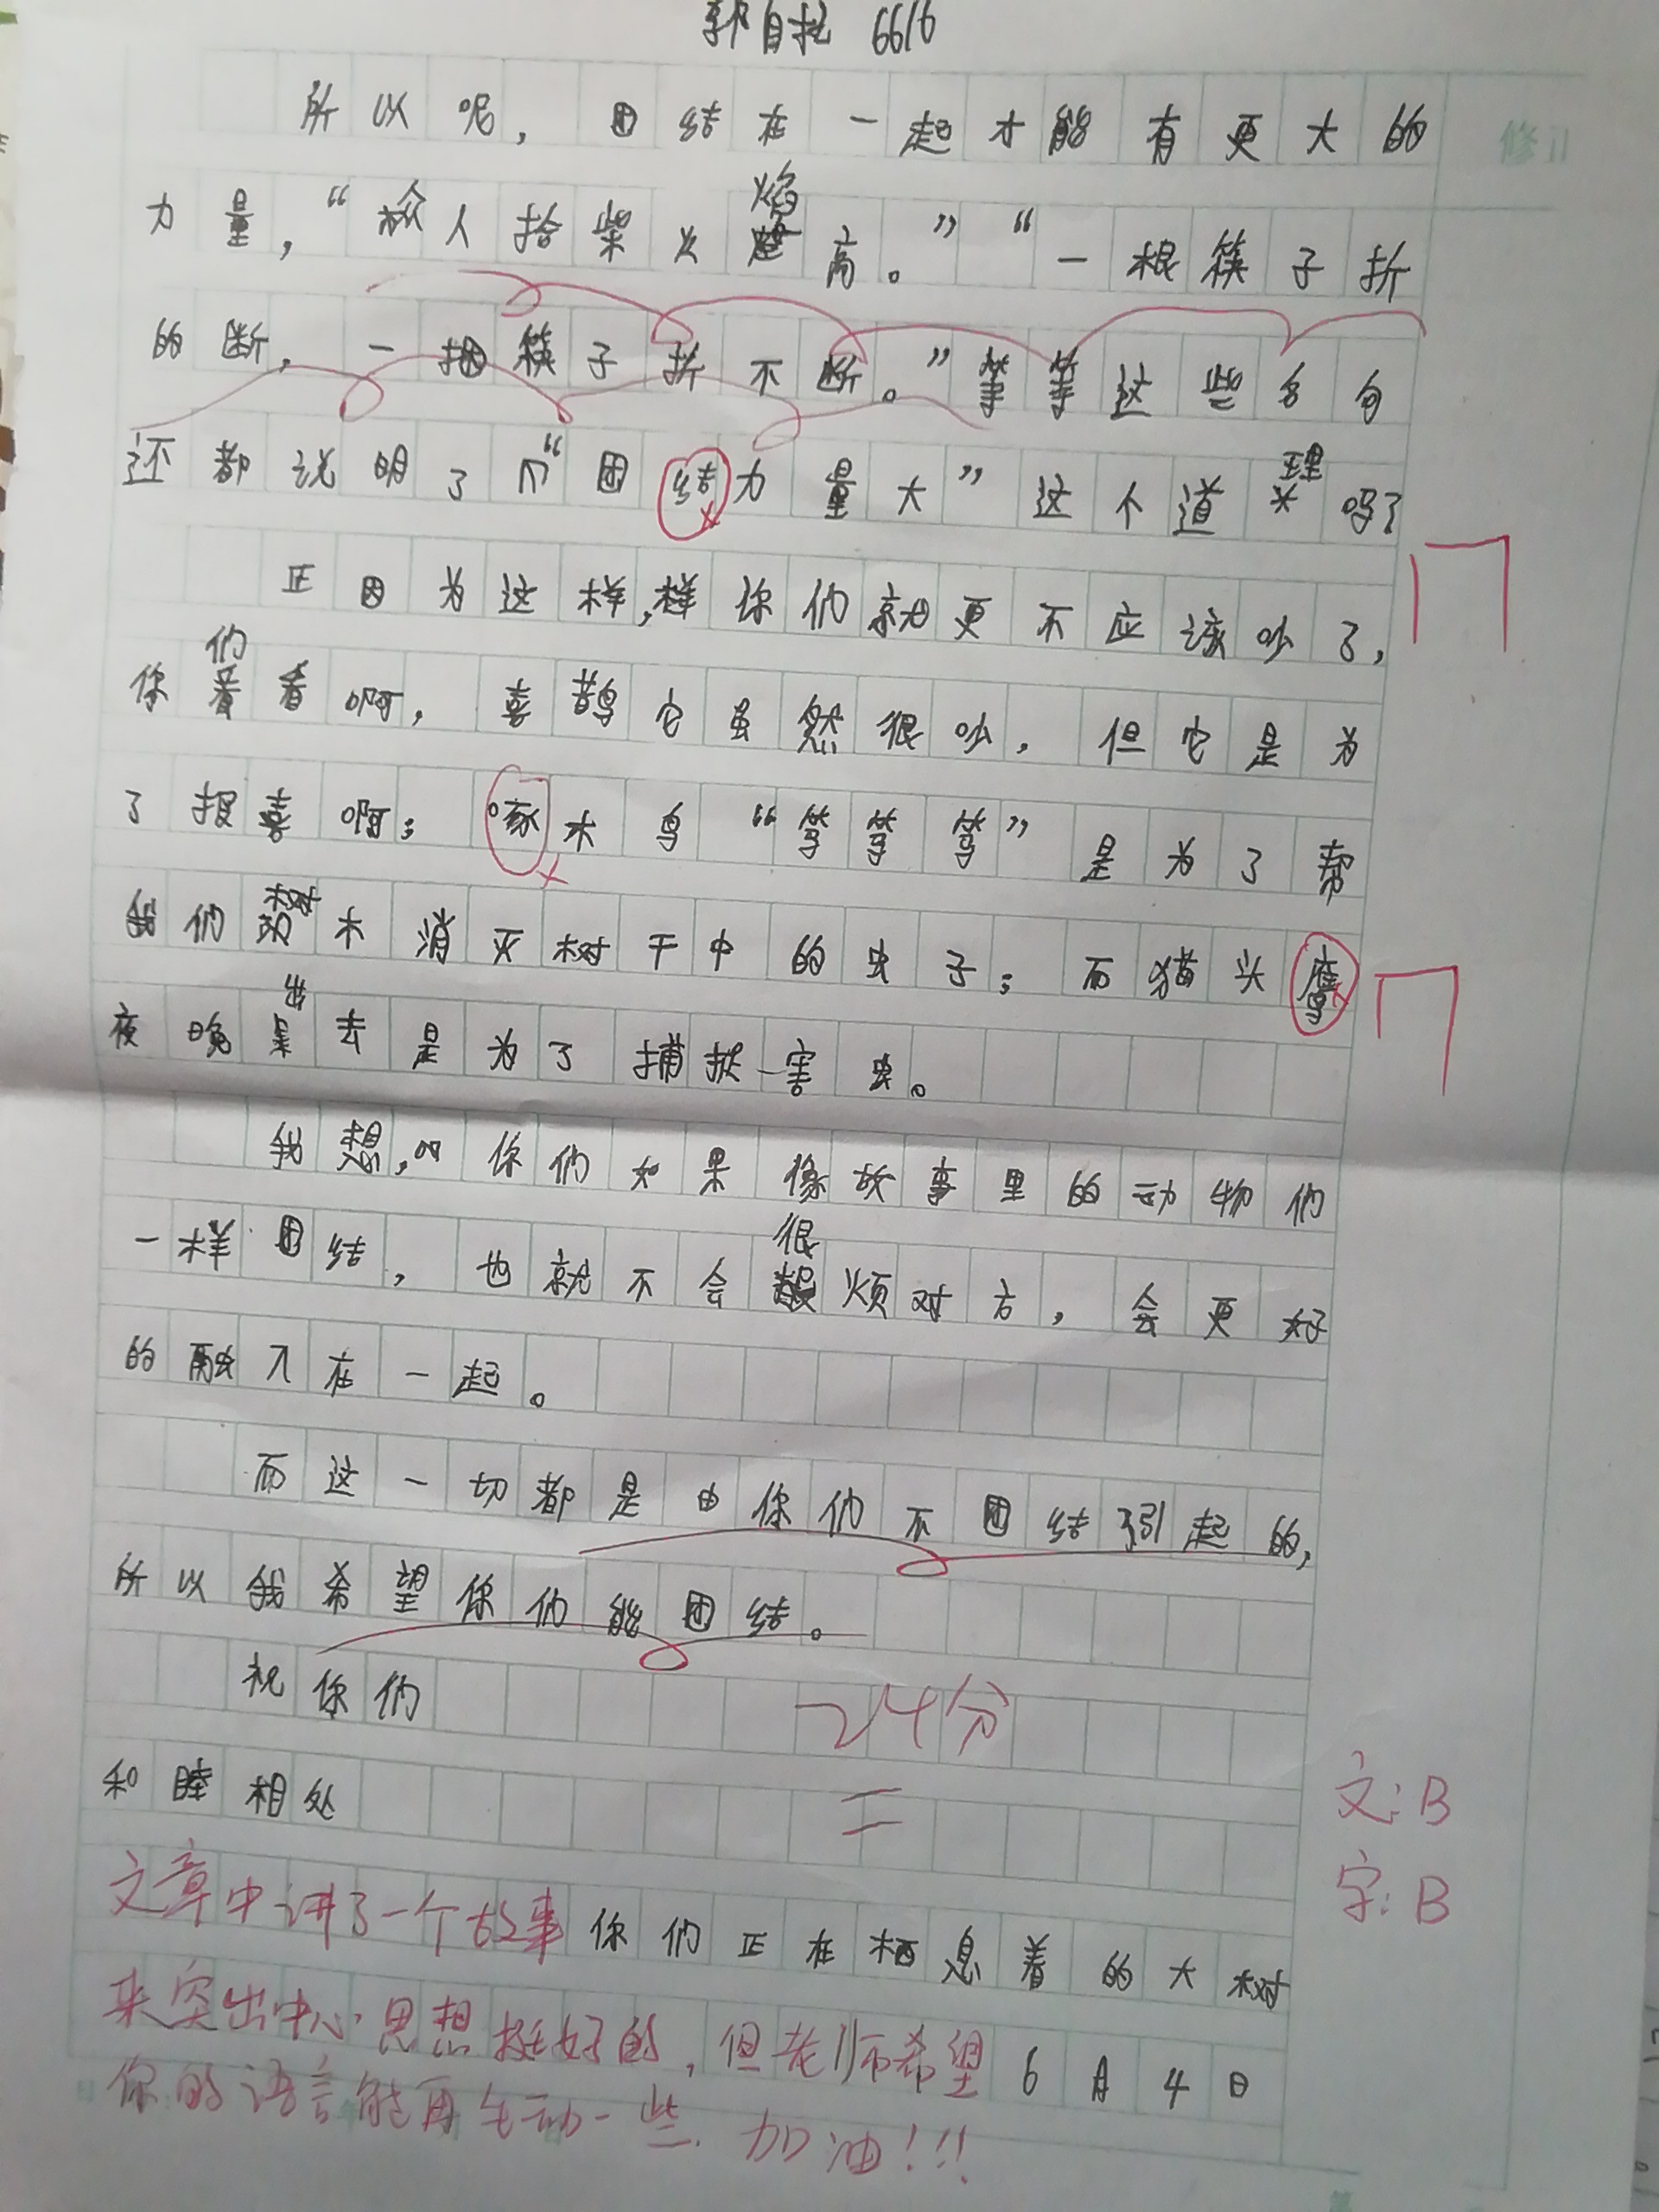 郭自 6616
所以呢，团结在一起才能有更大的
修订
力量，“众人拾柴火焰高。”“一根筷子折
的断，一捆筷子折不断。”等等这些名句
还都说明了“团结力量大”这个道理吗？
正因为这样，你们就更不应该吵了，
你们看看啊，喜鹊它虽然很吵，但它是为
了报喜啊；啄木鸟“笃笃笃”是为了帮
我们树木消灭树干中的虫子；而猫头鹰
夜晚出去是为了捕捉害虫。
我想，你们如果像故事里的动物们
一样团结，也就不会很烦对方，会更好
的融入在一起。
而这一切都是由你们不团结引起的，
所以我希望你们能团结。
祝你们
24分
和睦相处
文：B
字：B
文章中讲了一个故事
你们正在栖息着的大树
来突出中心思想挺好的，但老师希望
6月4日
你的语言能再生动一些.加油!!!